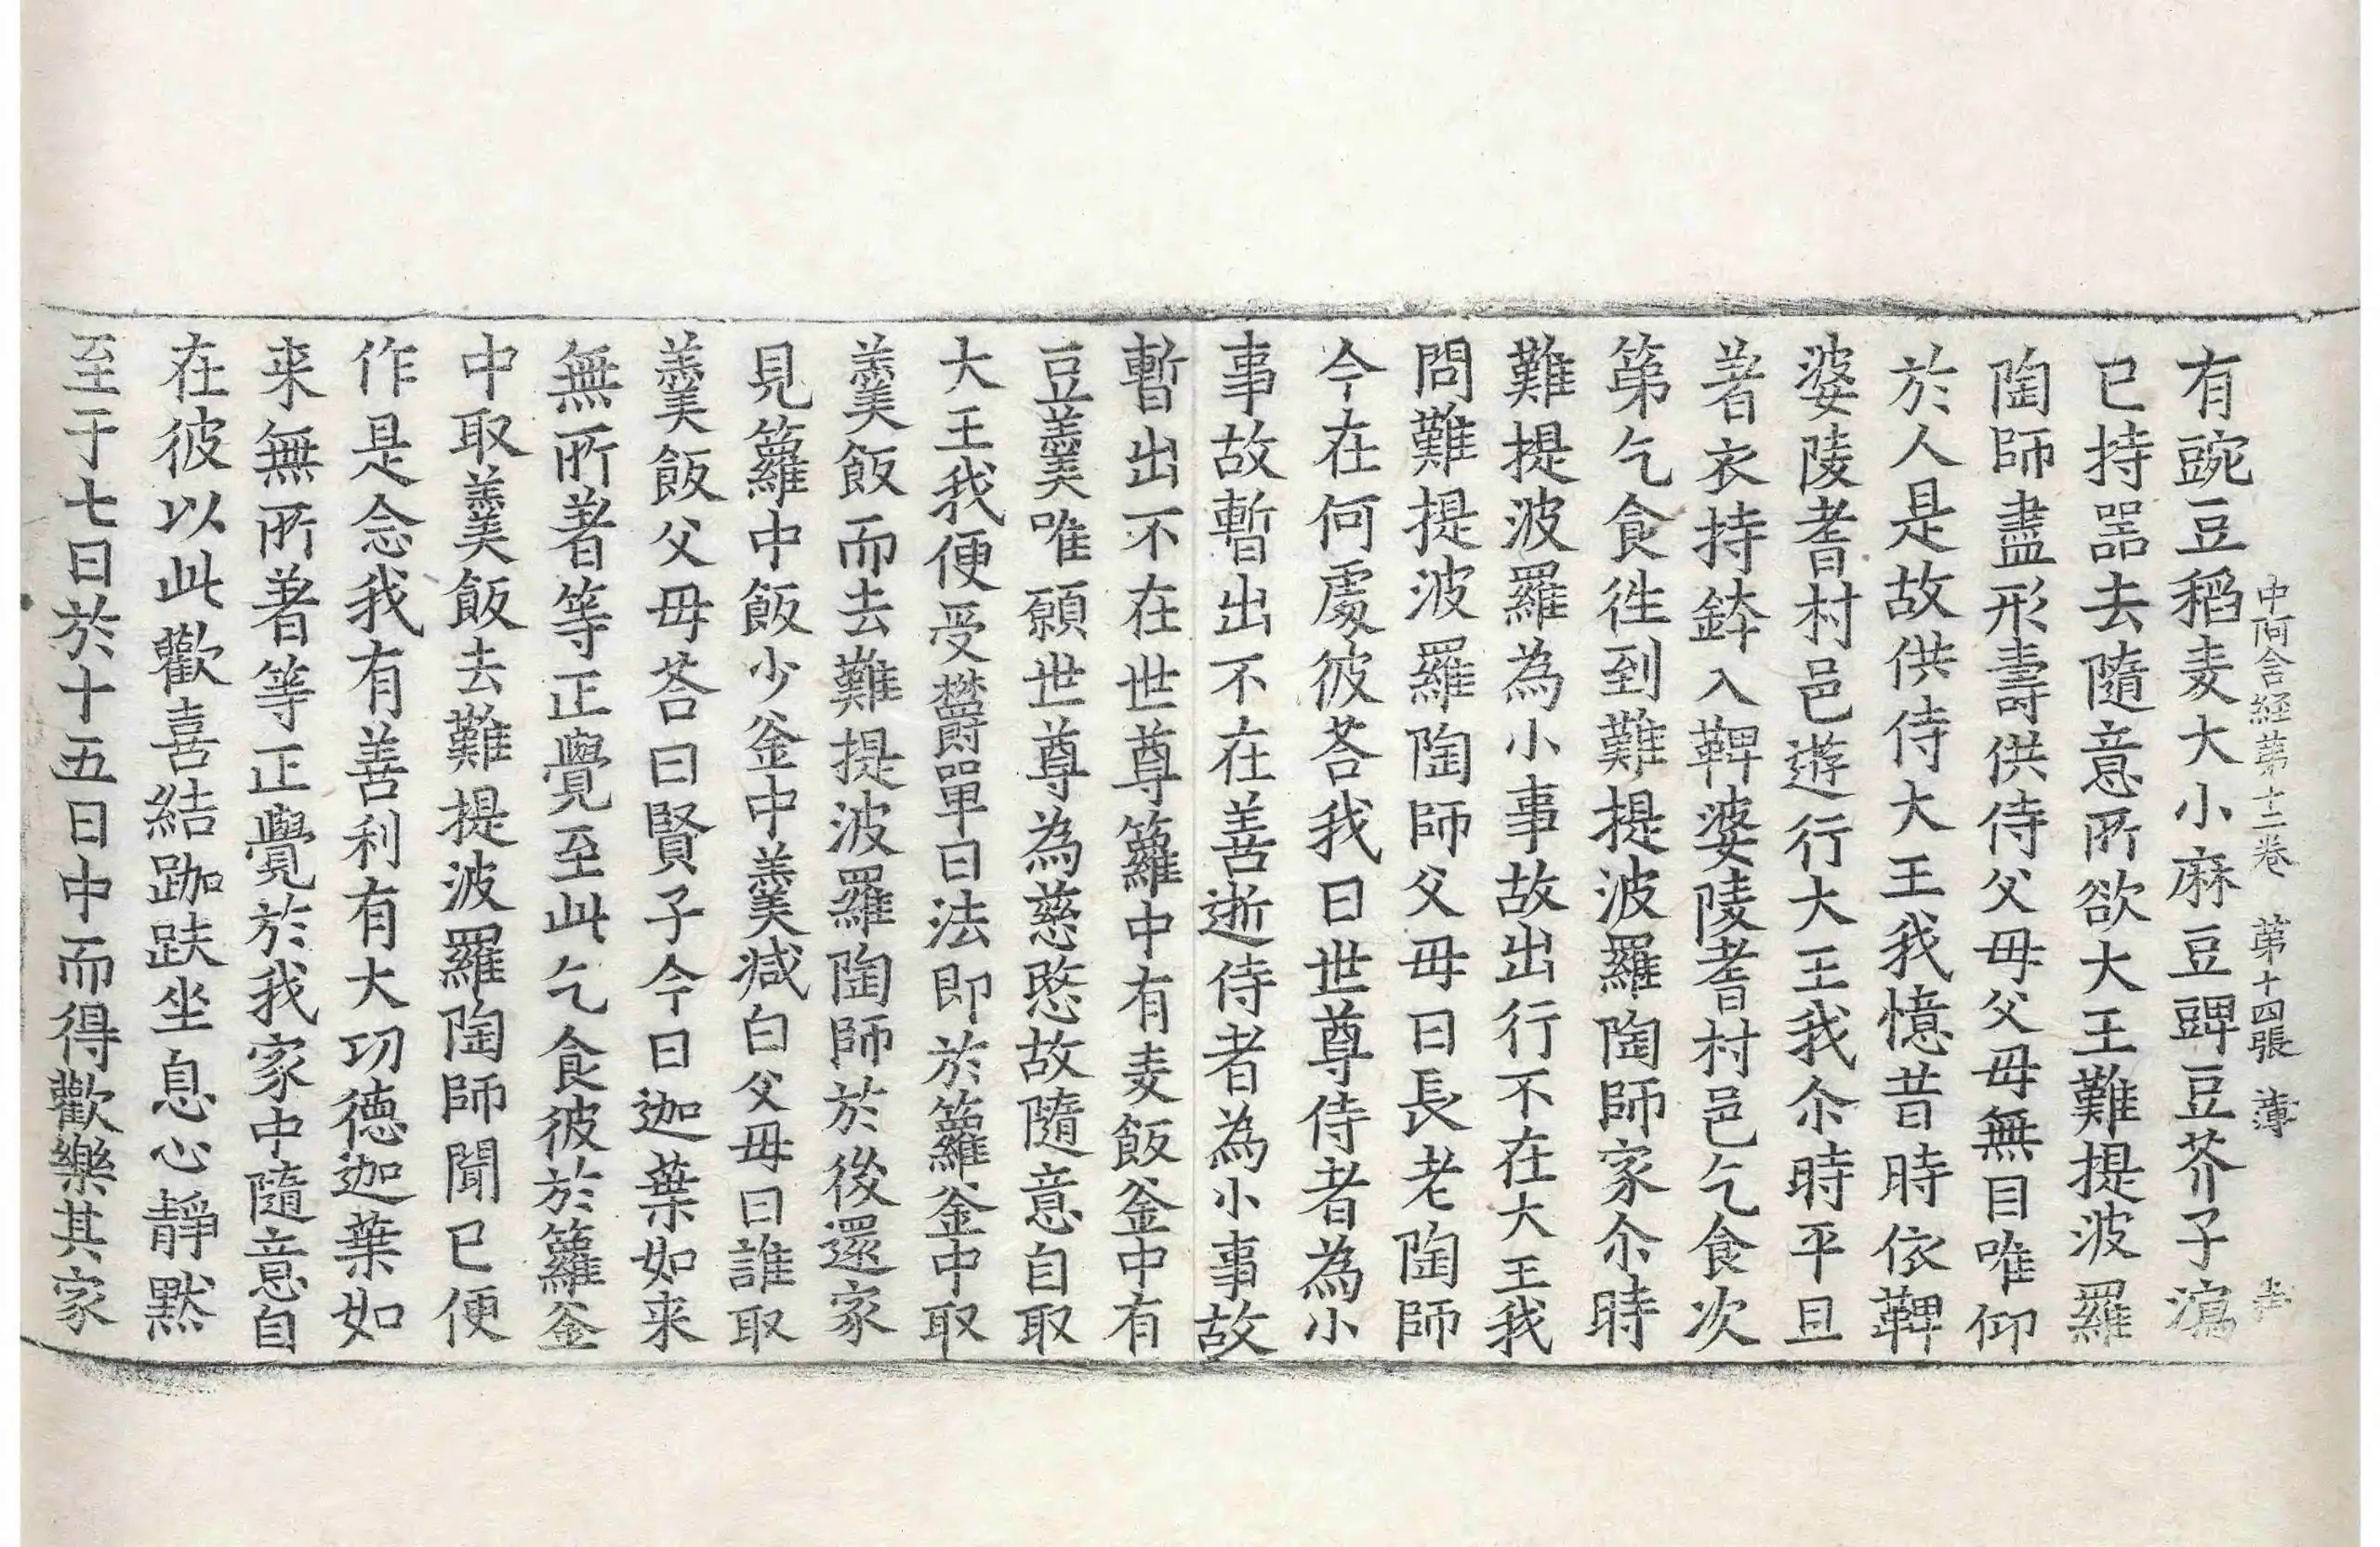 中阿含経苐十二卷 苐十四張 薄
有豌豆稻麦大小麻豆豍豆芥子瀉
已持器去隨意所欲大王難提波羅
陶師盡形壽供侍父母父母無目唯仰
於人是故供侍大王我憶昔時依鞞
婆陵耆村邑遊行大王我尒時平旦
著衣持鉢入鞞婆陵耆村邑乞食次
苐乞食徃到難提波羅陶師家尒時
難提波羅為小事故出行不在大王我
問難提波羅陶師父母曰長老陶師
今在何處彼荅我曰世尊侍者為小
事故暫出不在善逝侍者為小事故
暫出不在世尊籮中有麦飯釜中有
豆羹唯願世尊為慈愍故隨意自取
大王我便受欝單曰法即於籮釜中取
羹飯而去難提波羅陶師於後還家
見籮中飯少釜中羹減白父母曰誰取
羹飯父母荅曰賢子今日迦葉如来
無所著等正覺至此乞食彼於籮釜
中取羹飯去難提波羅陶師聞已便
作是念我有善利有大功德迦葉如
来無所著等正覺於我家中隨意自
在彼以此歡喜結跏趺坐息心靜默
至于七日於十五日中而得歡樂其家